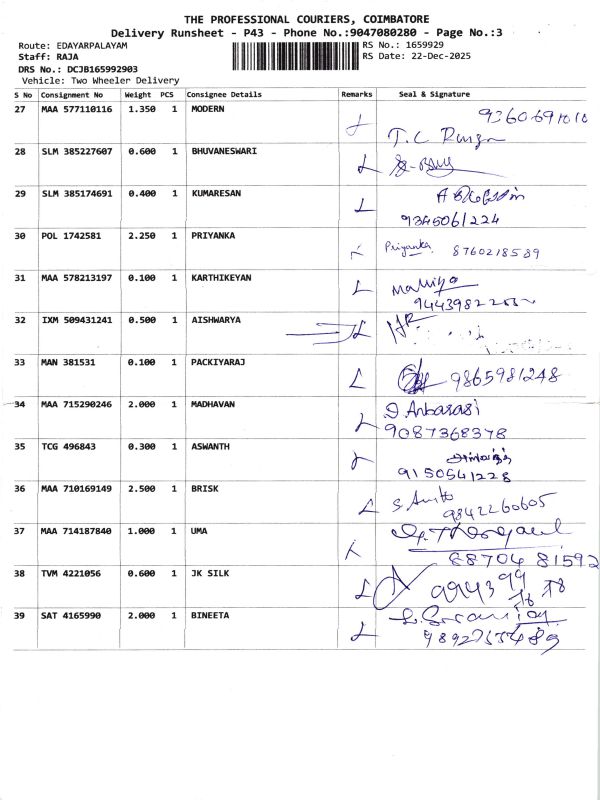 THE PROFESSIONAL COURIERS, COIMBATORE
Delivery Runsheet - P43 - Phone No.:9047080280 - Page No.:3
Route: EDAYARPALAYAM RS No.: 1659929
Staff: RAJA RS Date: 22-Dec-2025
DRS No.: DCJB165992903
Vehicle: Two Wheeler Delivery
S No Consignment No Weight PCS Consignee Details Remarks Seal & Signature
27 MAA 577110116 1.350 1 MODERN
T.C
28 SLM 385227607 0.600 1 BHUVANESWARI
29 SLM 385174691 0.400 1 KUMARESAN
9345061224
30 POL 1742581 2.250 1 PRIYANKA Priyanka 8760218589
31 MAA 578213197 0.100 1 KARTHIKEYAN
32 IXM 509431241 0.500 1 AISHWARYA
33 MAN 381531 0.100 1 PACKIYARAJ 9865981248
34 MAA 715290246 2.000 1 MADHAVAN D Anbarasi
9087368378
35 TCG 496843 0.300 1 ASWANTH
9150541228
36 MAA 710169149 2.500 1 BRISK
9842260605
37 MAA 714187840 1.000 1 UMA
88704 81592
38 TVM 4221056 0.600 1 JK SILK
39 SAT 4165990 2.000 1 BINEETA